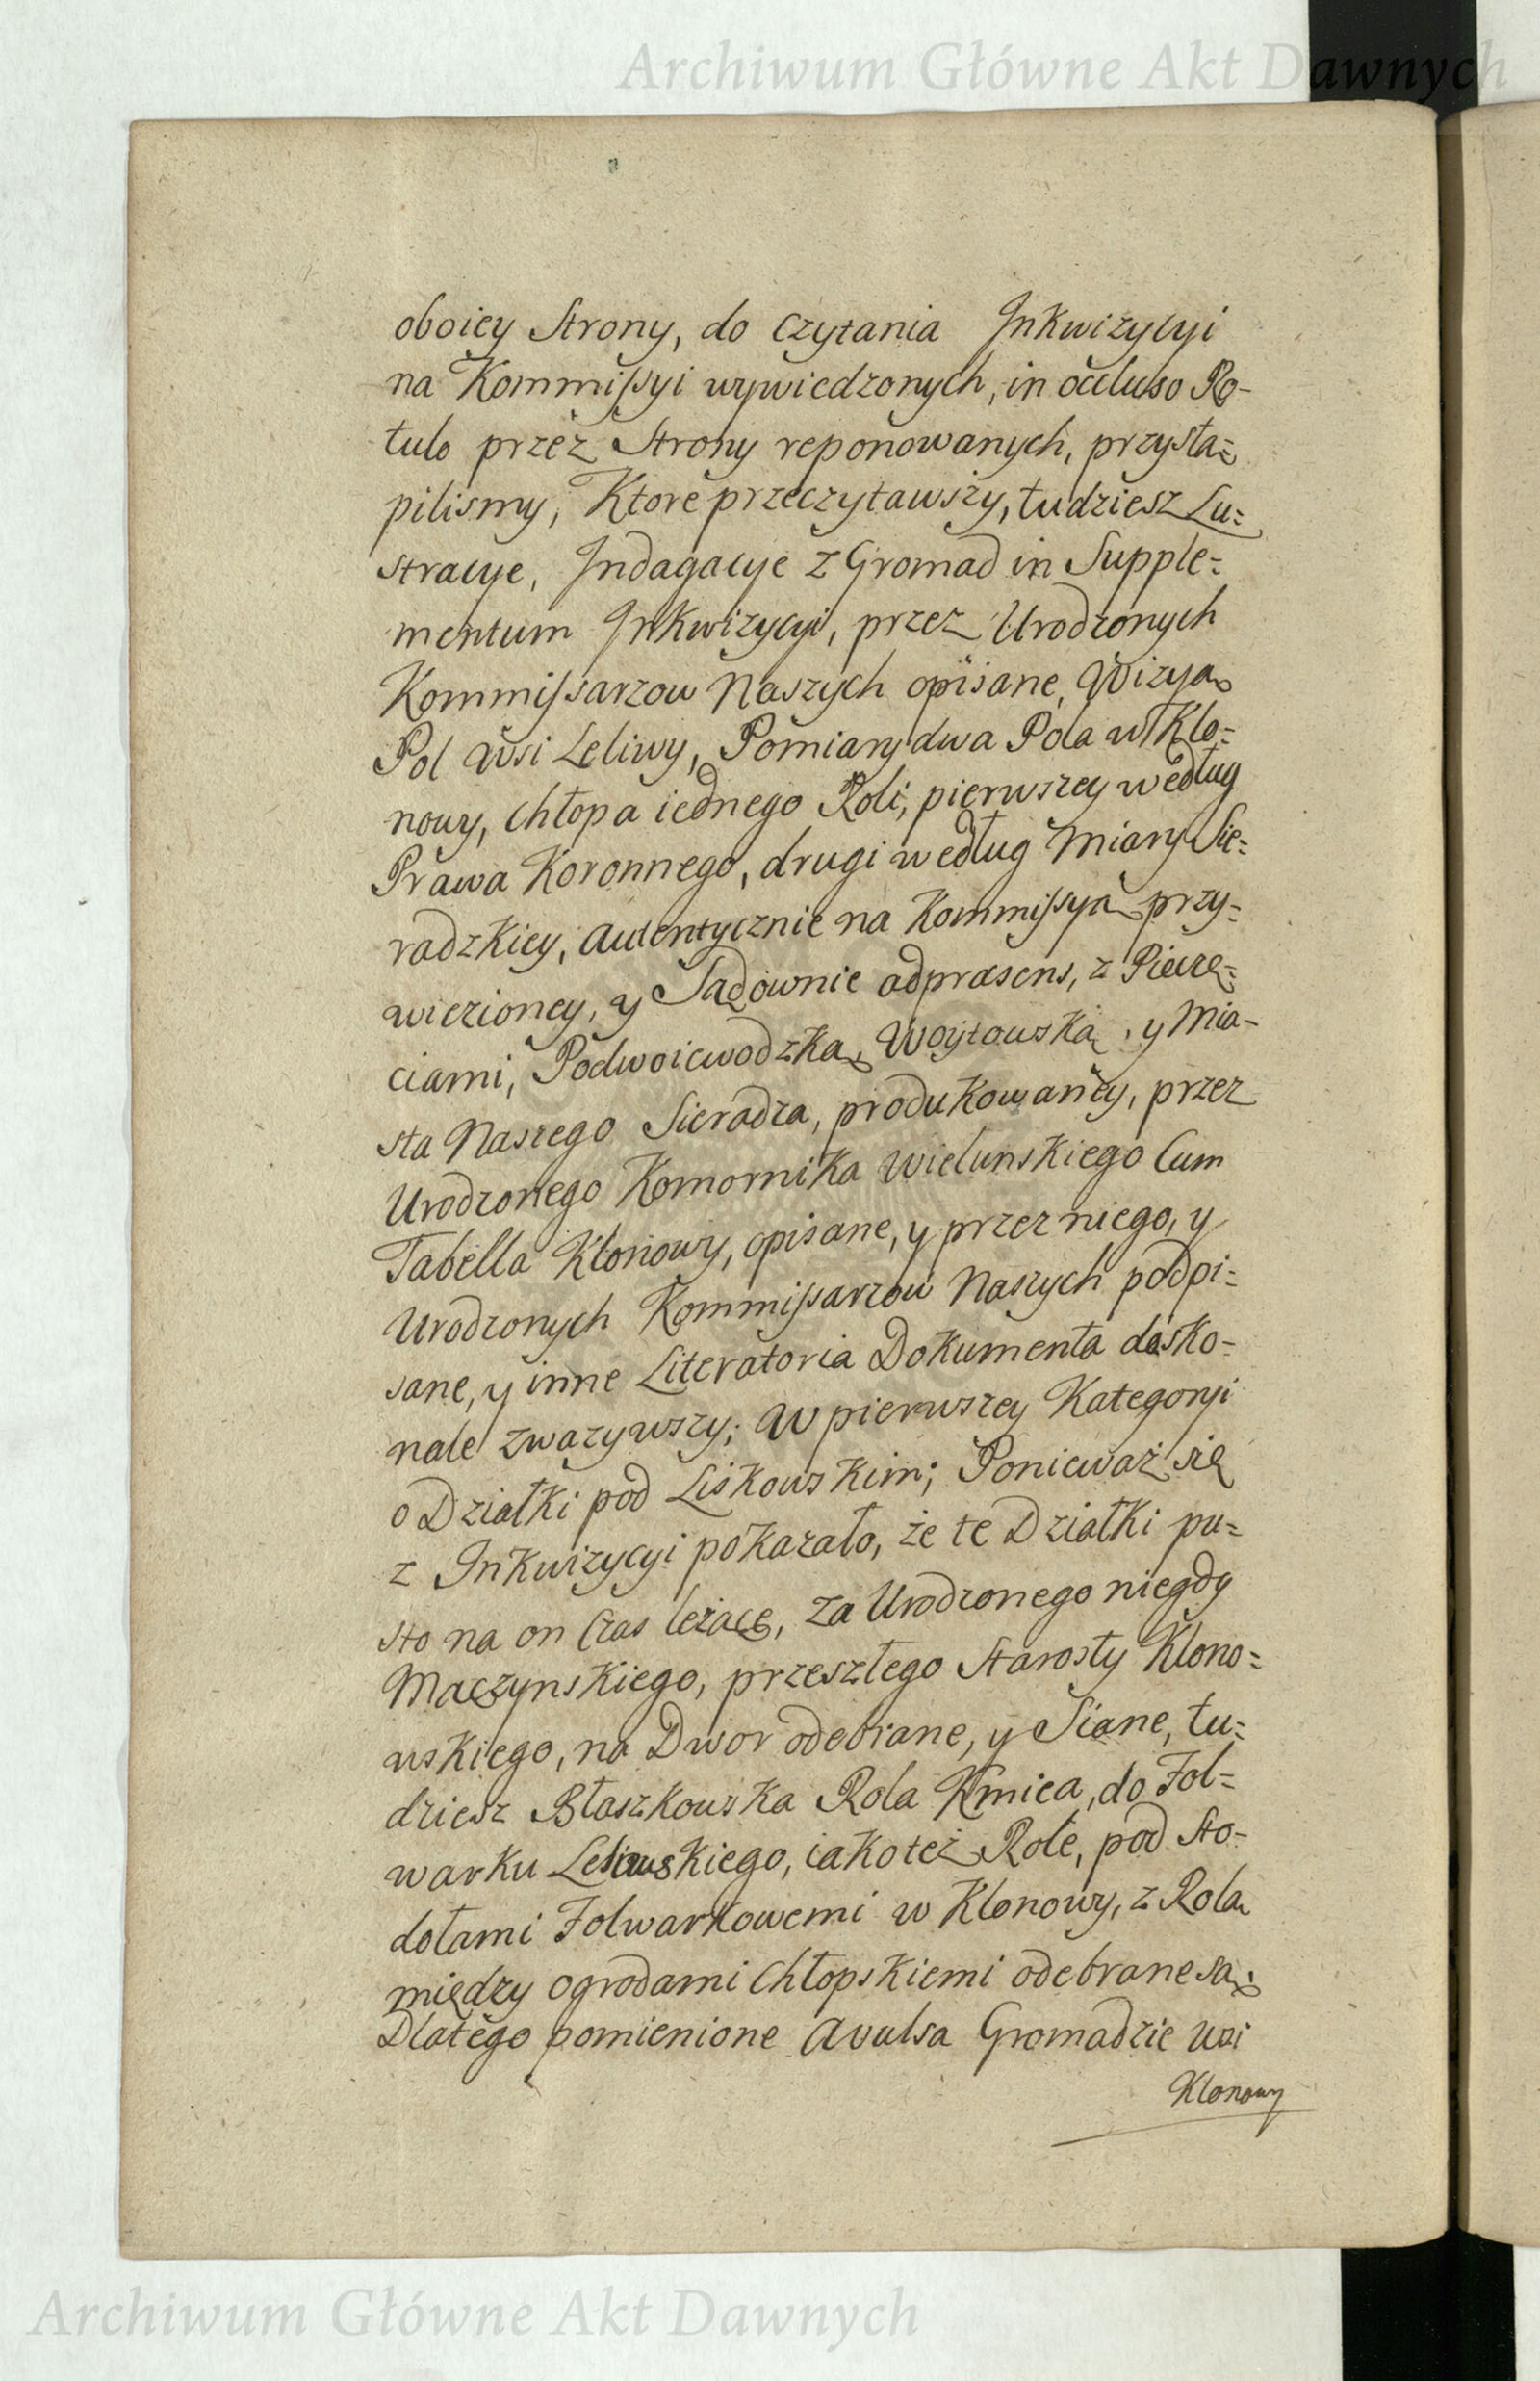 Archiwum Główne Akt Dawnych
oboiey Strony, do czytania Inkwizycyi
na Kommissyi wywiedzonych, in occluso Ro-
tulo przez Strony reponowanych, przystą=
pilismy, Ktore przeczytawszy, tudziesz Lu=
stracye, Indagacye z Gromad in Supple=
mentum Inkwizycyi, przez Urodzonych
Kommissarzow Naszych opisane, Wizyą
Pol wsi Leliwy, Pomiary dwa Pola w Klo=
nowy, Chłopa iednego Roli, pierwszey według
Prawa Koronnego, drugi według Miary Sie=
radzkiey, autentycznie na Kommissyą przy=
wiezioney, y Sądownie adprasens, z Pieczę=
ciami, Podwoiewodzką, Woytowską, y Mia-
sta Naszego Sieradza, produkowaney, przez
Urodzonego Komornika Wielunskiego Cum
Tabella Klonowy, opisane, y przez niego, y
Urodzonych Kommissarzow Naszych podpi=
sane, y inne Literatoria Dokumenta dosko-
nale zwazywszy; W pierwszey Kategoryi
o Działki pod Liskowskim; Ponieważ się
z Inkwizycyi pokazało, że te Działki pu=
sto na on Czas leżące, za Urodzonego niegdy
Mączynskiego, przeszłego Starosty Klono=
wskiego, na Dwor odebrane, y Siane, tu=
dziesz Błaszkowska Rola Kmieca, do Fol=
warku Leliwskiego, iako też Role, pod Sto-
dołami Folwarkowemi w Klonowy, z Rolą
między ogrodami Chłopskiemi odebrane są;
Dlatego pomienione Avulsa Gromadzie wsi
Klonowy
Archiwum Główne Akt Dawnych